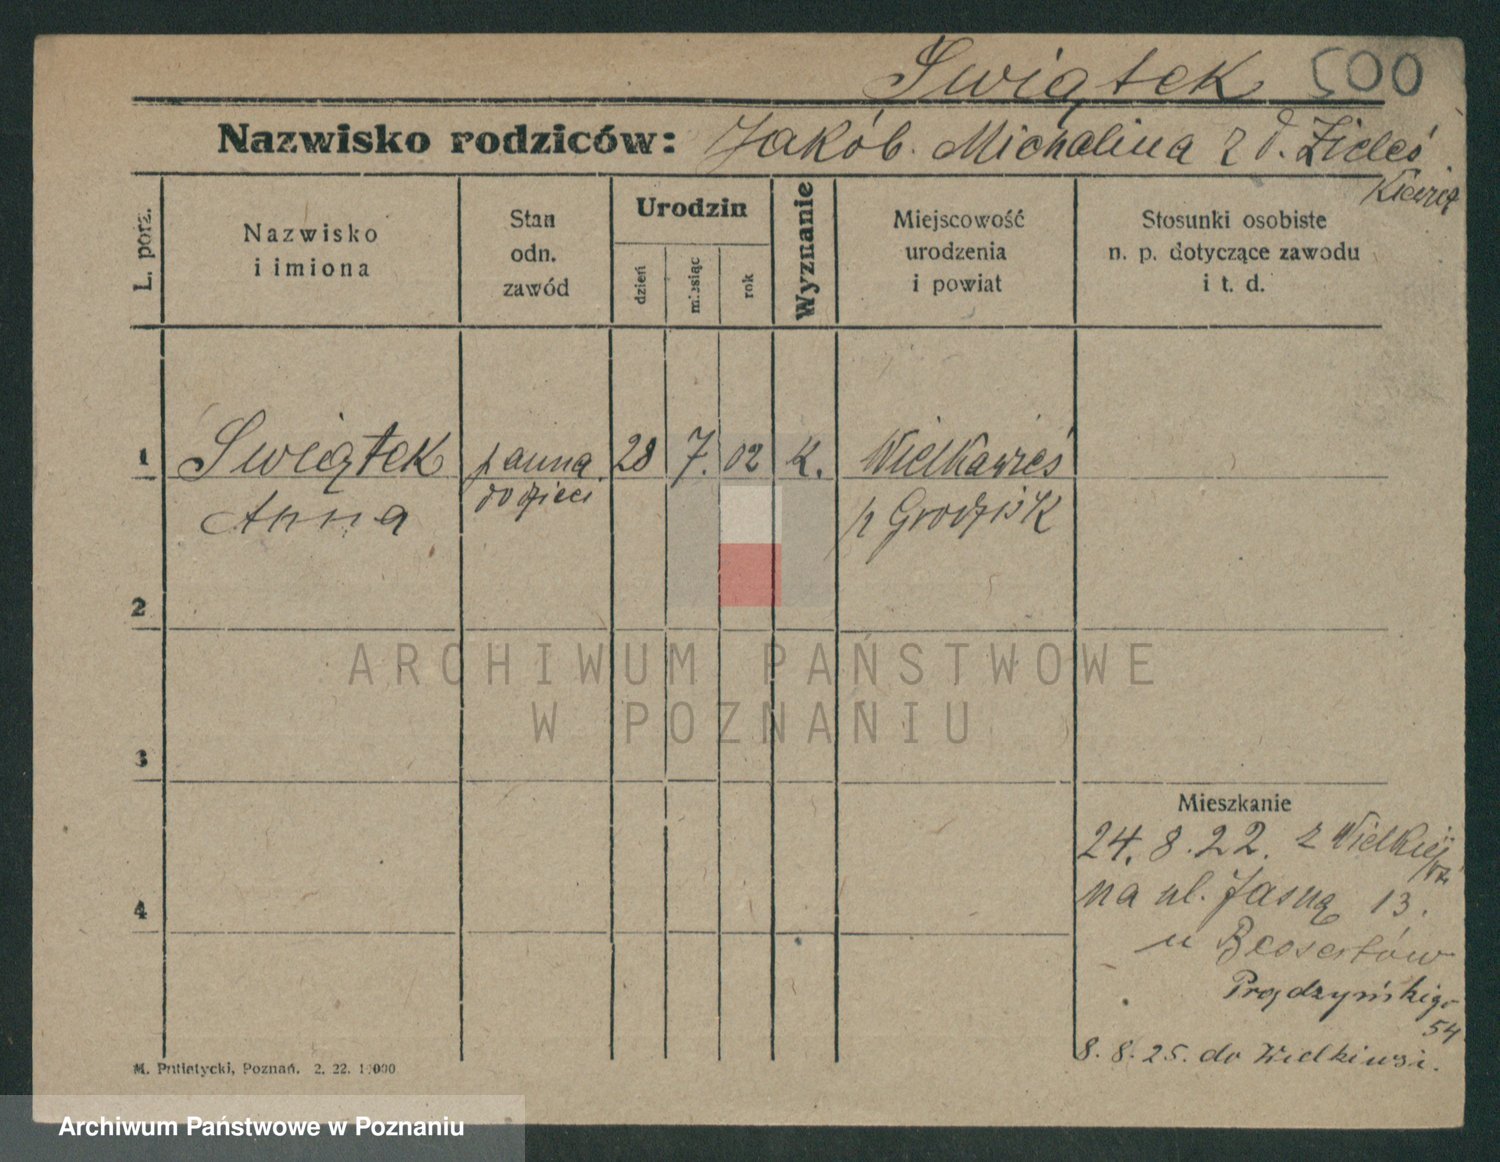 Świątek 500
Nazwisko rodziców: Jakób. Michalina z d.
L. porz.
Nazwisko
i imiona
Stan
odn.
zawód
Urodzin
dzień
miesiąc
rok
Wyznanie
Miejscowość
urodzenia
i powiat
Stosunki osobiste
n. p. dotyczące zawodu
i t. d.
1 Świątek panna 28 7. 02 k. Wielkawieś
Anna do dzieci p Grodzisk
2
ARCHIWUM PAŃSTWOWE
W POZNANIU
3
Mieszkanie
24. 8. 22. z Wielkiej
na ul. Jasną 13.
4
u
Prądzyńskiego
54
8. 8. 25. do Wielkiwsi.
M. Putiatycki, Poznań. 2. 22. 11000
Archiwum Państwowe w Poznaniu